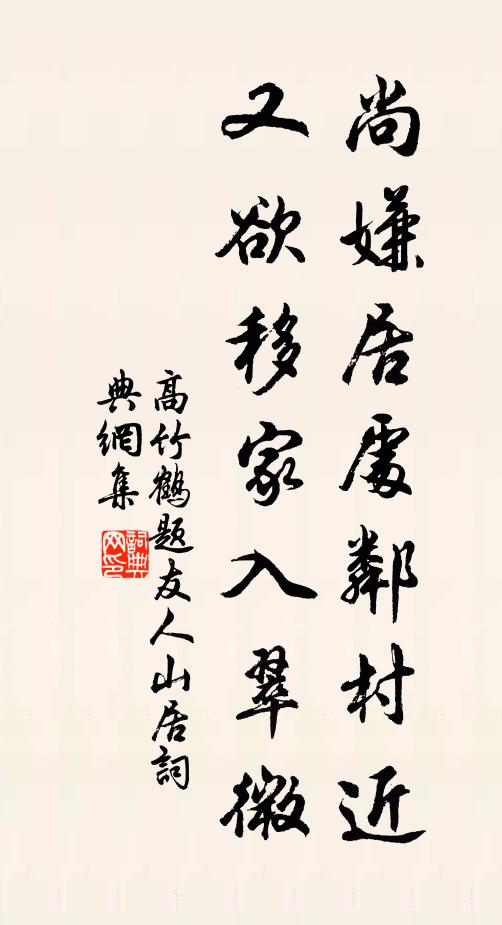 尚嫌居處鄰村近
又欲移家入翠微
高竹鶴題友人山居詞
典網集
詞典网印